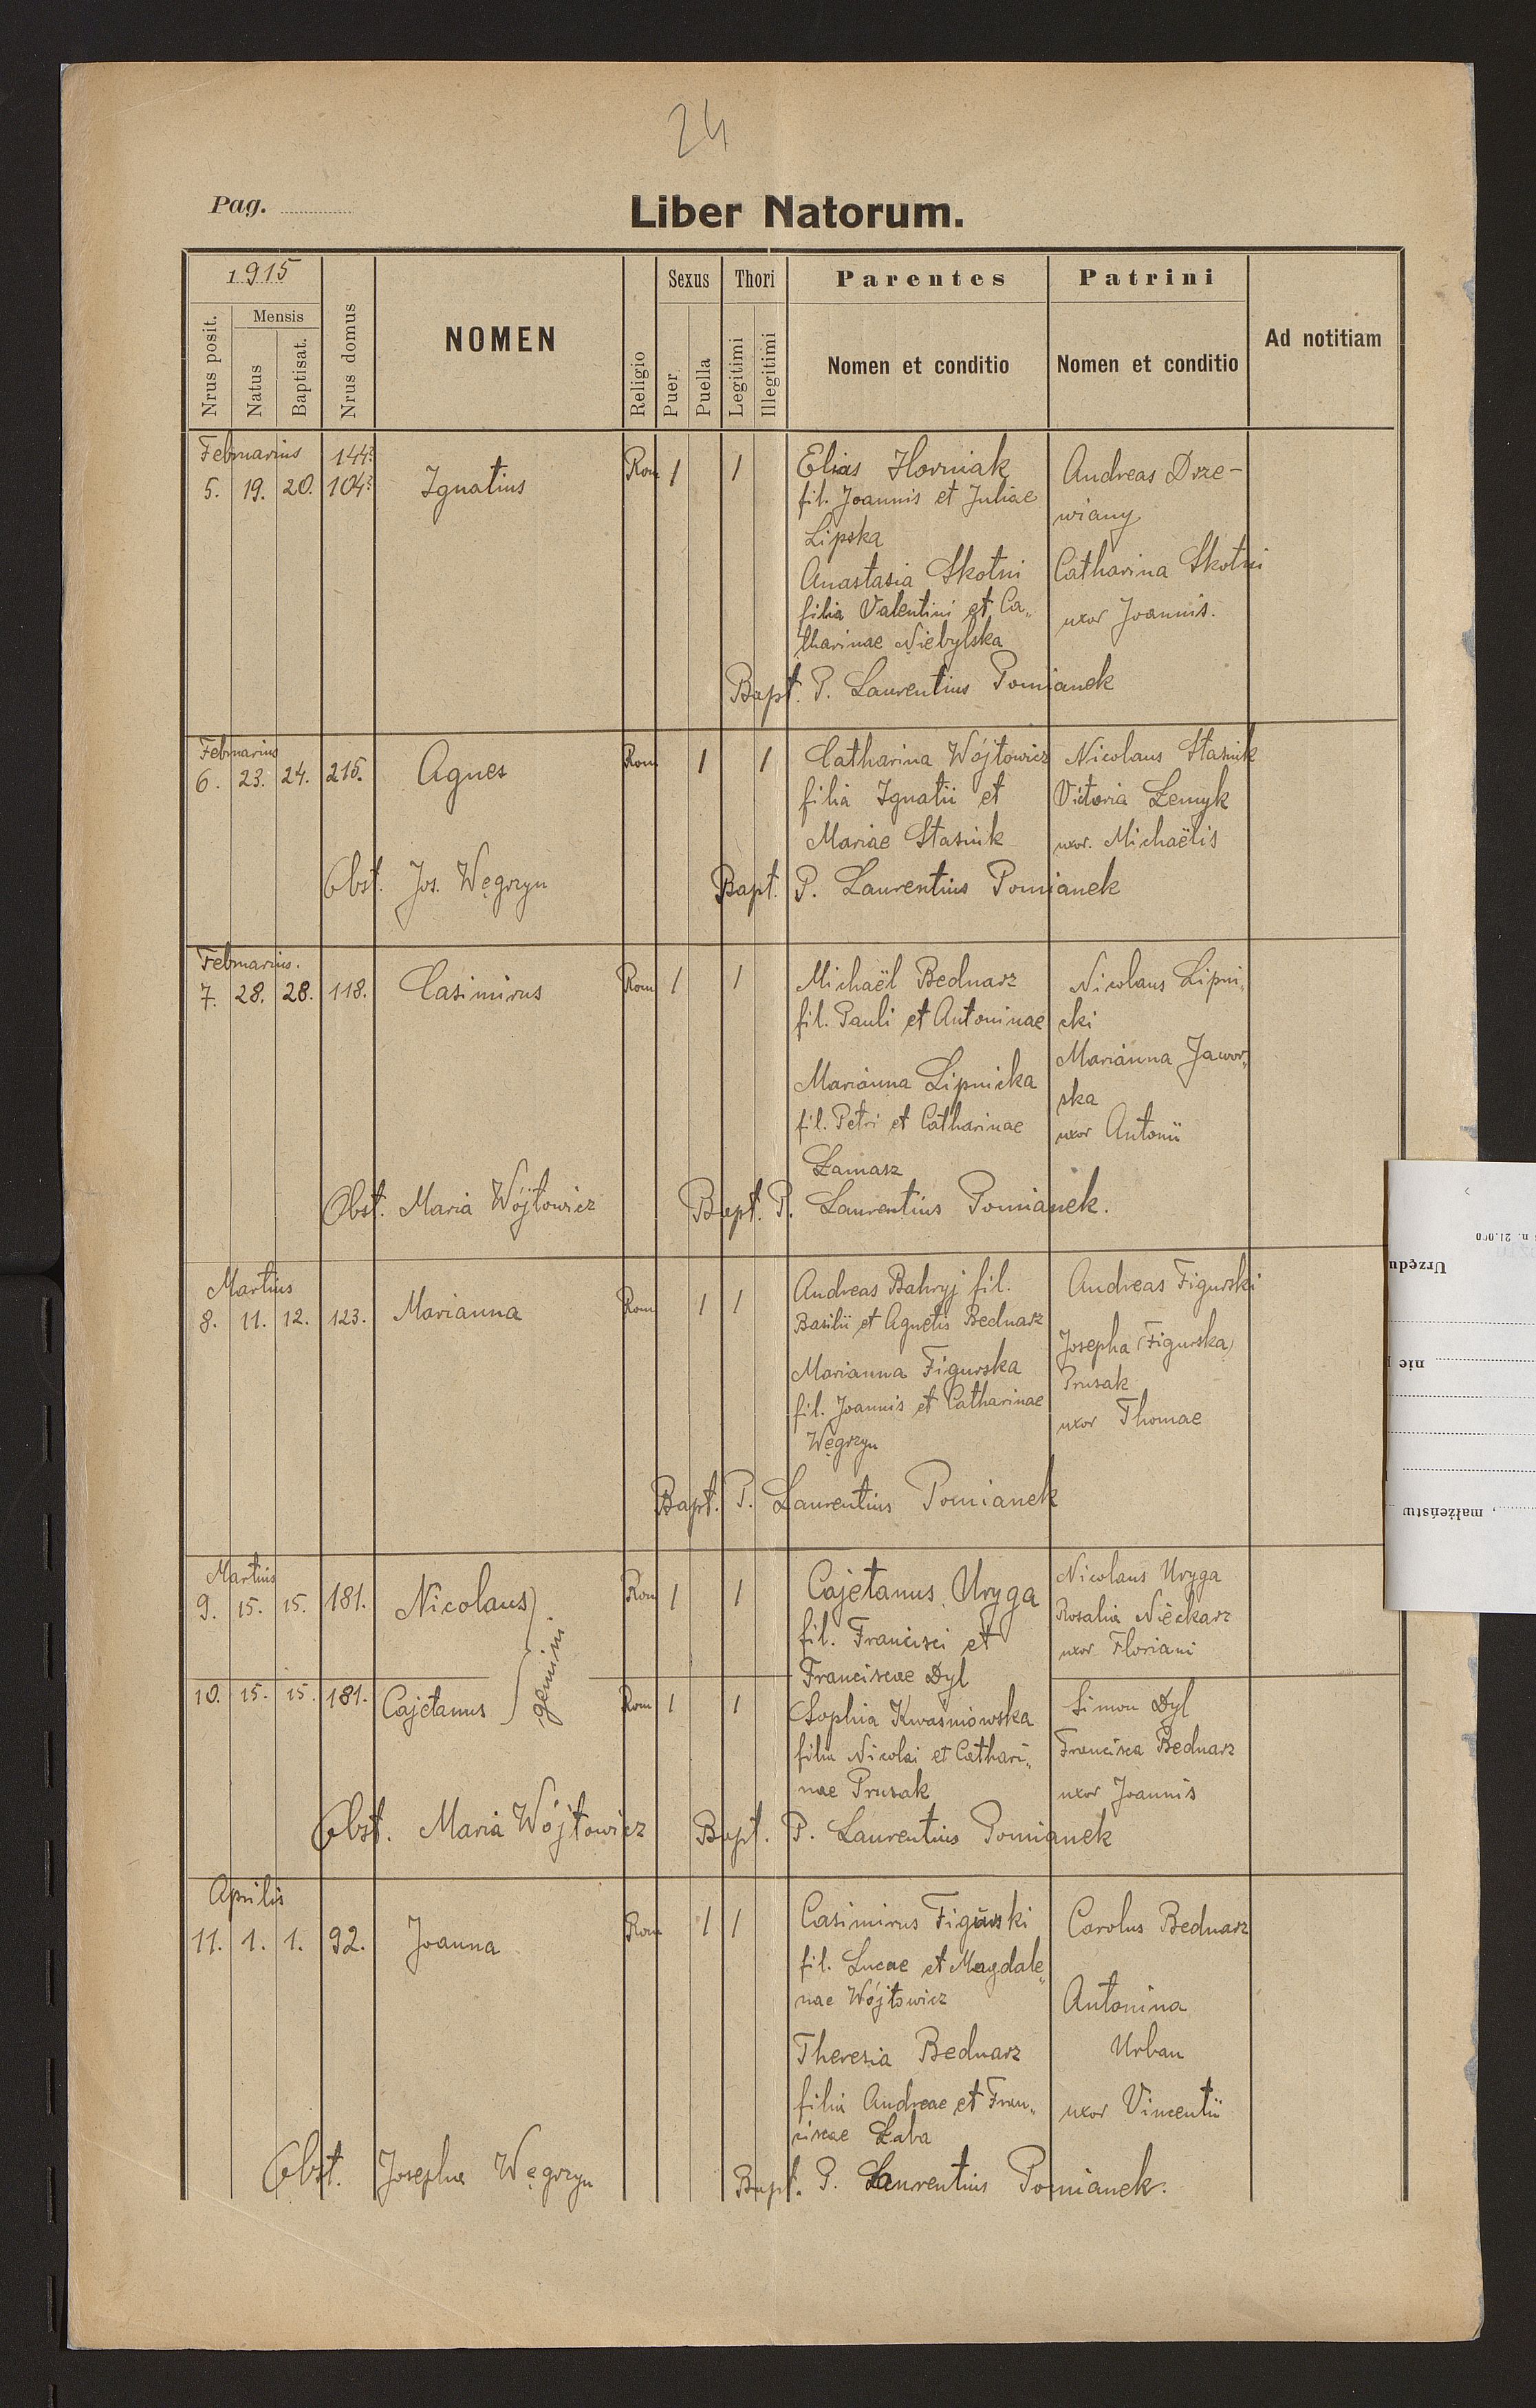 24
Pag.
Liber Natorum.
1915
Nrus posit.
Mensis
Natus
Baptisat.
Nrus domus
NOMEN
Religio
Sexus
Puer
Puella
Thori
Legitimi
Illegitimi
Parentes
Nomen et conditio
Patrini
Nomen et conditio
Ad notitiam
Februarius 144?
5. 19. 20. 104? Ignatius Rom 1 1
Elias Horniak
fil. Joannis et Juliae
Lipska
Anastasia Skotni
filia Valentini et Ca„
tharinae Niebylska
Andreas Drze-
wiany
Catharina Skotni
uxor Joannis.
Bapt. P. Laurentius Pomianek
Februarius
6. 23. 24. 215. Agnes Rom 1 1
Catharina Wójtowicz
filia Ignatii et
Mariae Stasiuk
Nicolaus Stasiuk
Victoria Łemyk
uxor. Michaëlis
Obst. Jos. Węgrzyn Bapt. P. Laurentius Pomianek
Februarius.
7. 28. 28. 118. Casimirus Rom 1 1
Michaël Bednarz
fil. Pauli et Antoninae
Marianna Lipnicka
fil. Petri et Catharinae
Łamasz
Nicolaus Lipni„
cki
Marianna Jawor„
ska
uxor Antonii
Obst. Maria Wójtowicz Bapt. P. Laurentius Pomianek.
Martius
8. 11. 12. 123. Marianna Rom 1 1
Andreas Bahryj fil.
Basilii et Agnetis Bednarz
Marianna Figurska
fil. Joannis et Catharinae
Węgrzyn
Andreas Figurski
Josepha (Figurska)
Prusak
uxor Thomae
Bapt. P. Laurentius Pomianek
Martius
9. 15. 15. 181. Nicolaus Rom 1 1
gemini
Cajetanus Uryga
fil. Francisci et
Franciscae Dyl
Nicolaus Uryga
Rosalia Nieckarz
uxor Floriani
10. 15. 15. 181. Cajetanus Rom 1 1
Sophia Kwasniowska
filia Nicolai et Cathari„
nae Prusak
Simon Dyl
Francisca Bednarz
uxor Joannis
Obst. Maria Wójtowicz Bapt. P. Laurentius Pomianek
Aprilis
11. 1. 1. 92. Joanna Rom 1 1
Casimirus Figurski
fil. Lucae et Magdale„
nae Wójtowicz
Theresia Bednarz
filia Andreae et Fran„
ciscae Łaba
Carolus Bednarz
Antonina
Urban
uxor Vincentii
Obst. Josepha Węgrzyn Bapt. P. Laurentius Pomianek.
n. 21.000
Urzędu
nie
małżeństw